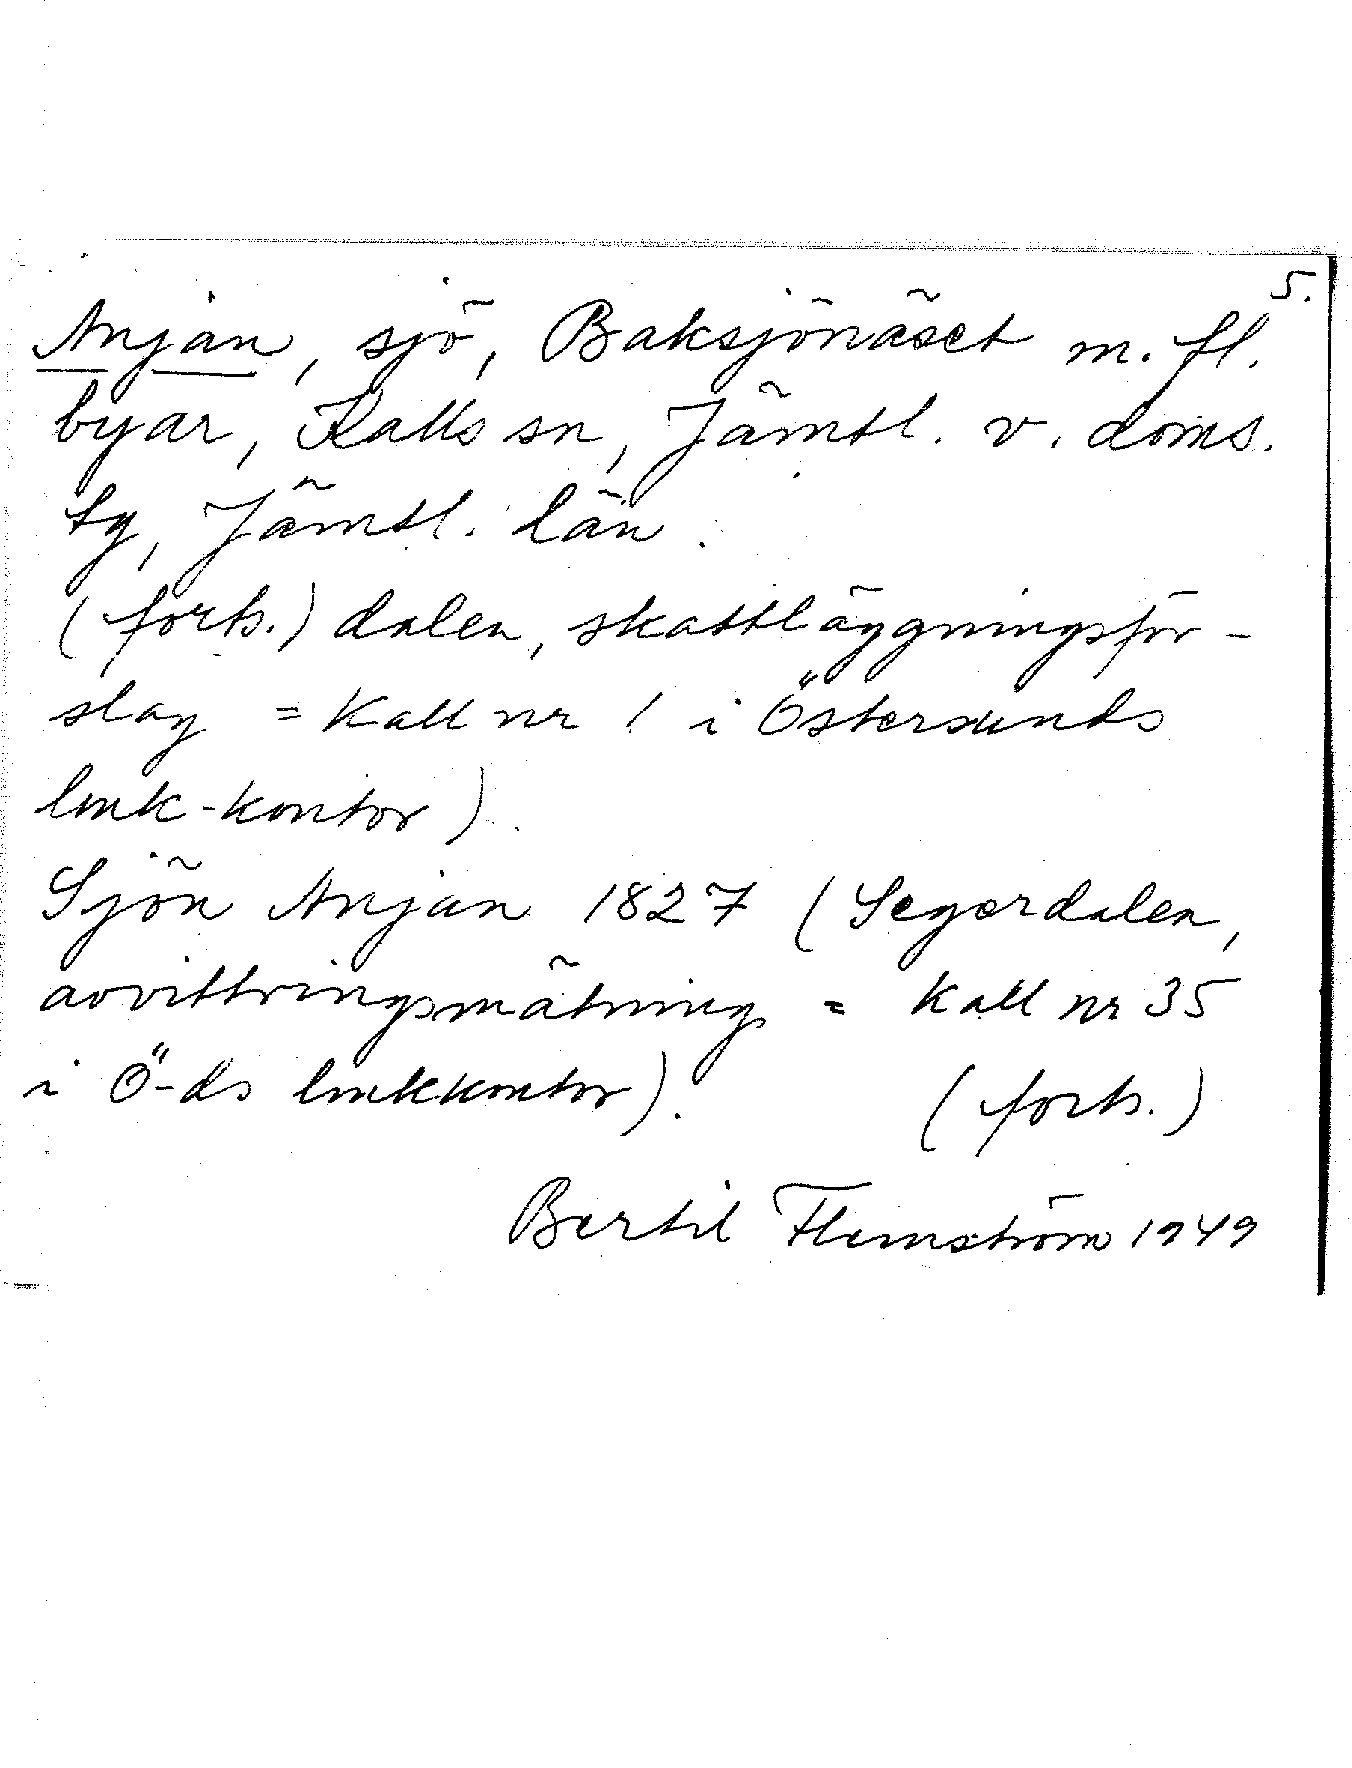 5.
Anjan, sjö, Baksjönäset m. fl.
byar, Kalls sn, Jämtl. v. doms.
tg, Jämtl. län.
(forts.) dalen, skattläggningsför-
slag = Kall nr 1 i Östersunds
lmk-kontor).
Sjön Anjan 1827 (Segerdalen,
avvittringsmätning = Kall nr 35
i Ö-ds lmkkontor). (forts.)
Bertil Flemström 1949